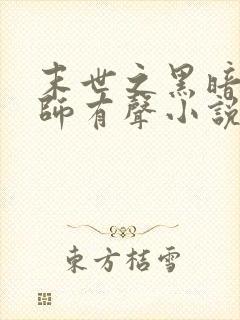 末世之黑暗
師有聲小說
東方桔雪